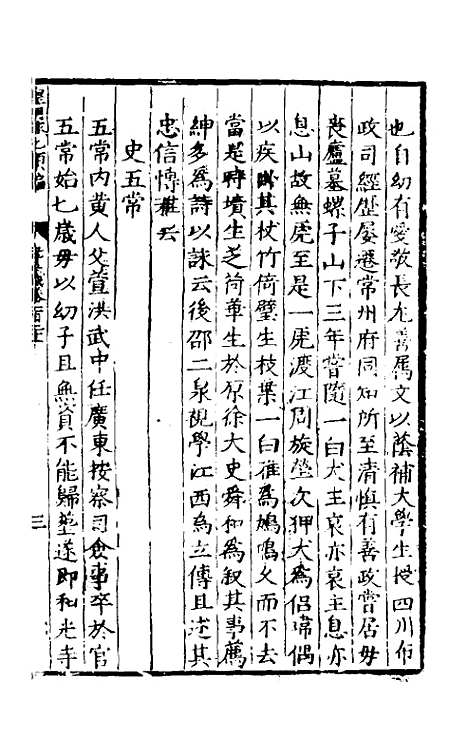 也自幼有愛敬長尤善属文以蔭補大學生授四川布
政司經歷屡遷常州府同知所至清慎有善政嘗居母
喪廬墓螺子山下三年嘗隨一白犬主哀亦哀主息亦
息山故無虎至是一虎渡江周旋塋次狎犬為侣常偶
以疾
其杖竹倚壁生枝葉一白雅為鳩鳴久而不去
當是時墳生芝荷華生於原徐大史舜和為叙其事薦
紳多為詩以詠云後邵二泉視學江西為立傳且述其
忠信慱雅云
史五常
五常内黄人父萱洪武中任廣東按察司僉事卒於官
五常始七歲毋以幼子且無資不能歸塟遂即和光寺
三